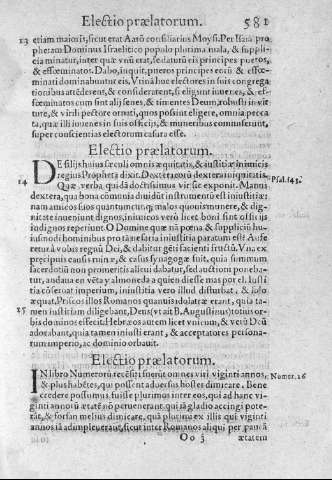 Electio prælatorum. 581
23 etiam maioris, sicut etat Aarō consiliarius Moysi. Per Isaiā pro
phetam Dominus Israelitico populo plurima mala, & suppli
cia minatur, inter quæ vnū etat, se daturū eis principes pueros,
& effœminatos. Dabo, inquit, pueros principes eorū & effœ
minati dominabuntur eis. Vtinā huc electores in suis congrega
tionibus attēderent, & considerarent, si eligunt iuuenes, & ef-
fœminatos cum sint alij senes, & timentes Deum, robusti in vir
tute, & virili pectore ornati, quos possunt eligere, omnia pecca
ta, quæ illi iuuenes in suis officijs, & muneribus commiserunt,
super conscientias electorum casura esse.
Electio prælatorum.
24 DE filijs huius sæculi omnis æquitatis, & iustitiæ inimicis,
regius Propheta dixit. Dextera eorū dextera iniquitatis. Psal. 143.
Quæ verba, quidā doctissimus vir sic exponit. Manus
dextera, qua bona communia diuidūt instrumentū est iniustitiæ:
nam amicos suos quantumuis malos quouis munere, & dig-
nitate inueniunt dignos, inimicos verò licet boni sint ossis ijs
indignos reperiunt. O Domine quæ nā pœna & suppliciū hu-
iusmodi hominibus pro tanefaria iniustitia paratum est? Aufe
retur à vobis regnū Dei, & dabitur gēti facienti fructū. Vna ex
præcipuis causis ruinæ, & casus synagogæ fuit, quia summum
sacerdotiū non promeritis alicui dabatur, sed auctioni poneba-
tur, andaua en vēta y almoneda a quien diesse mas por el. Iusti
tia cōseruat imperium, iniustitia vero illud disturbat, & iuso
25 æquat. Priscos illos Romanos quauis idolatræ erant, quia ta-
men iustitiam diligebant, Deus (vt ait B. Augustinus) totius or-
bis dominos effecit. Hebræos autem licet vnicum, & verū Deū
adorabant, quia tamen iniusti erant, & acceptatores persona-
rum imperio, ac dominio orbauit.
Electio prælatorum.
IN libro Numerorū recēseri fuerūt omnes viri viginti annos, Numer. 26
& plus habētes, qui possent aduersus hostes dimicare. Bene
credere possumus fuisse plurimos inter eos, qui ad hanc vi-
ginti annorū ætatē nō peruenerant, qui iā gladio accingi pote-
rāt, & forsan melius dimicare, quā plurimi ex illis qui viginti
annos iā adimpleuerāt, sicut inter Romanos aliqui per paucā
Oo 3 ætatem